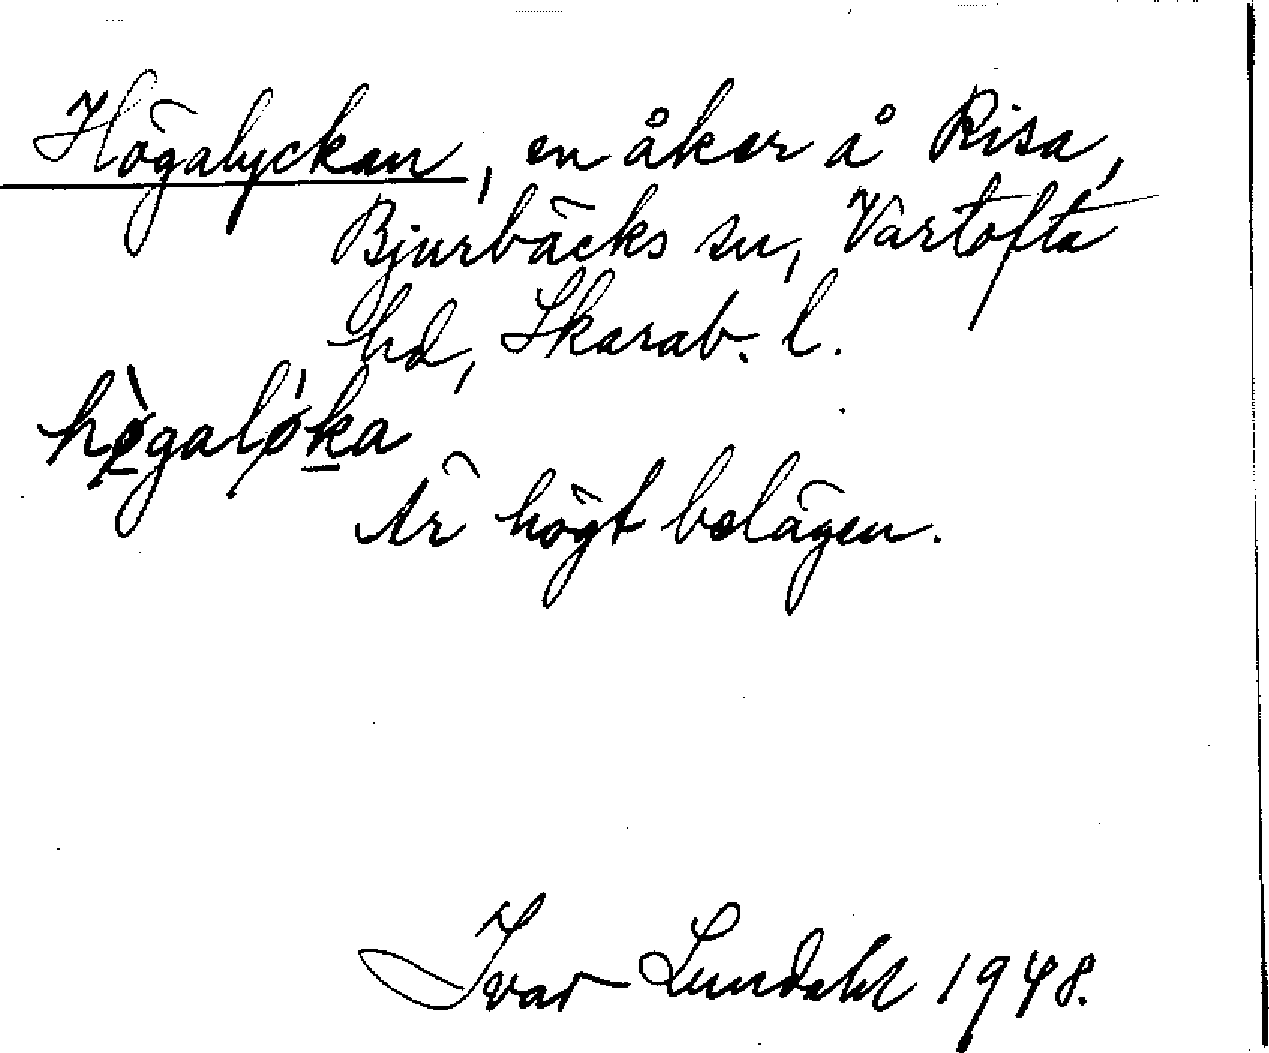 Högalyckan, en åker å Risa,
Bjurbäcks sn, Vartofta
hd, Skarab. l.
hø̀galø̍ka
Är högt belägen.
Ivar Lundahl 1948.